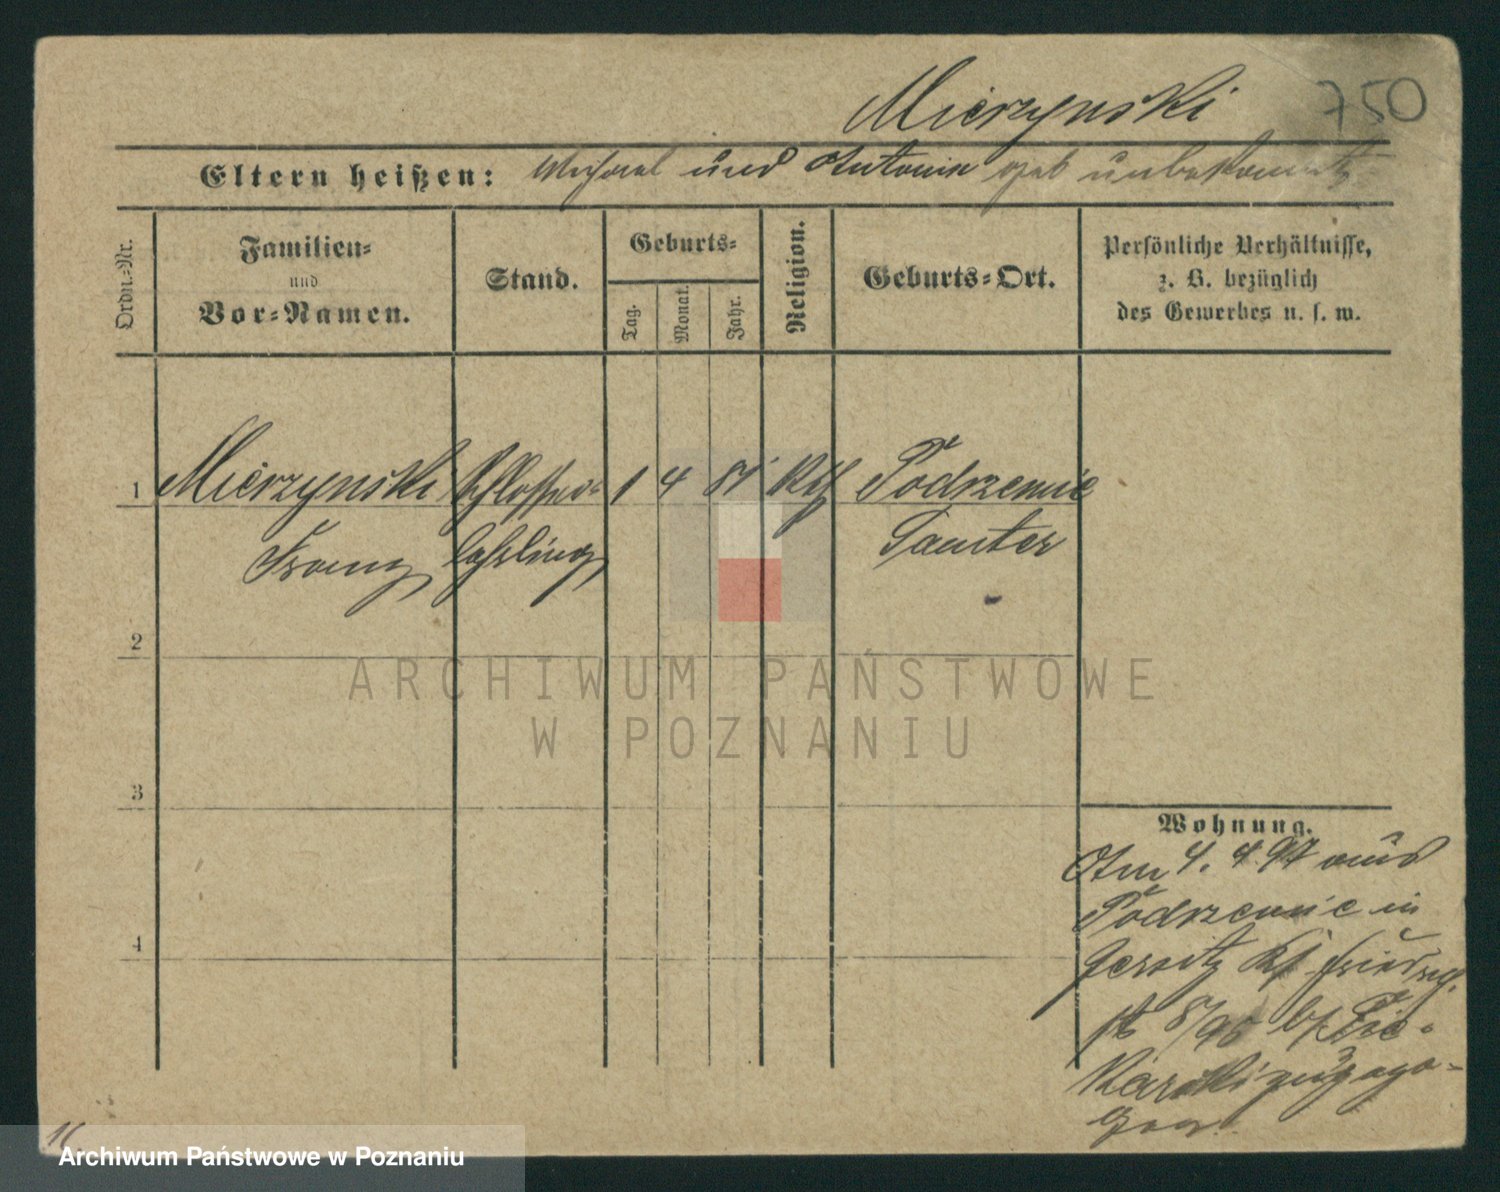 750
Mierzynski
Eltern heißen: Michael und Antonie geb unbekannt
Ordn.-Nr.
Familien-
und
Vor-Namen.
Stand.
Geburts-
Tag.
Monat.
Jahr.
Religion.
Geburts-Ort.
Persönliche Verhältnisse,
z. B. bezüglich
des Gewerbes u. s. w.
1 Mierzynski Schlosser- 1 4 81 Kth Podrzewie
Franz lehrling Samter
2
3
4
Wohnung.
Am 4. 4 97 aus
Podrzewie in
Jersitz
8/95
zugezo-
gen.
16
ARCHIWUM PAŃSTWOWE
W POZNANIU
Archiwum Państwowe w Poznaniu